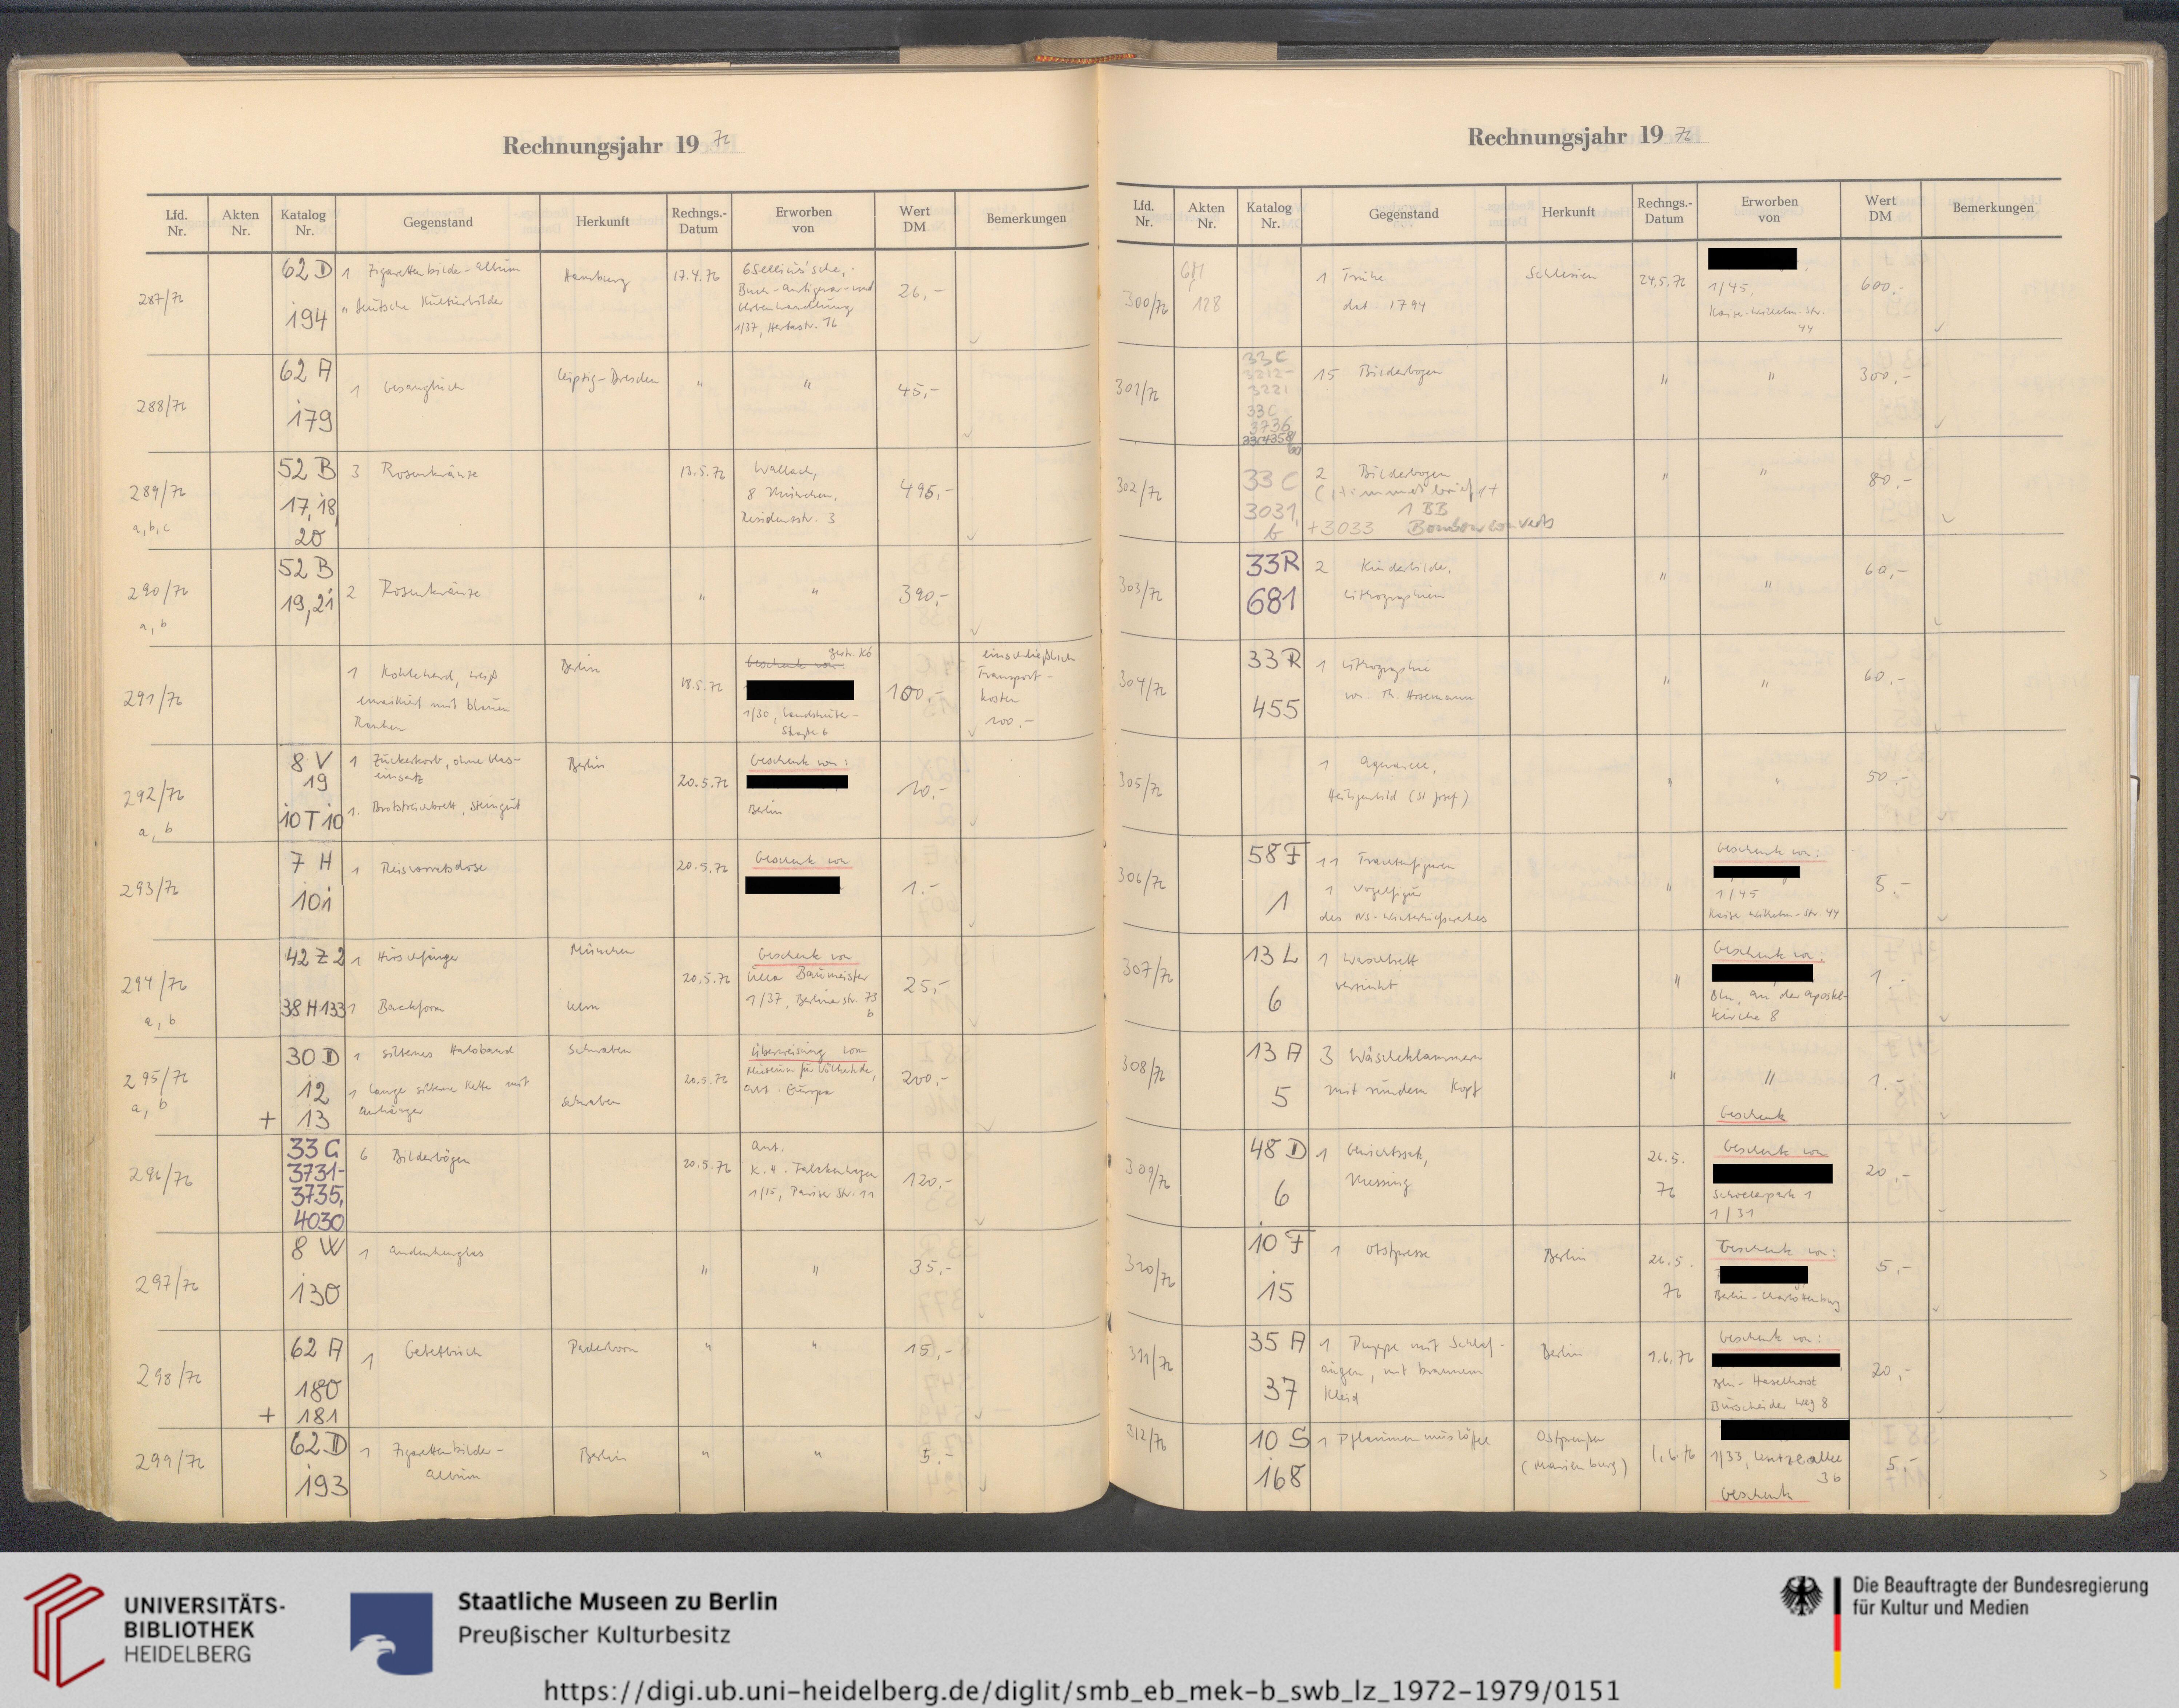 Rechnungsjahr 1976
Lfd. Nr. Akten Nr. Katalog Nr. Gegenstand Herkunft Rechngs.-Datum Erworben von Wert DM Bemerkungen
287/76 62 D 1 Zigarettenbilder-Album Hamburg 17.4.76 Gsellius'sche,
194 "Deutsche Kulturbilder Buch-Antiquar- und 26,-
1/37, Hertastr. 16
288/76 62 A 1 Gesangbuch Leipzig-Dresden " " 45,-
179
289/76 52 B 3 Rosenkränze 13.5.76 Wallach, 495,-
a,b,c 17, 18, 8 München,
20 Residenzstr. 3
290/76 52 B 2 Rosenkränze " " 390,-
a, b 19, 21
291/76 1 Kohleherd, weiß Berlin 18.5.76 Geschenk von gestr. Kö 100,- einschließlich
emailliert mit blauen 1/30, Landshuter- Transport-
Straße 6 kosten
100,-
292/76 8 V 1 Zuckerkorb, ohne Glas- Berlin 20.5.76 Geschenk von: 10,-
a, b 19 einsatz Berlin
10 T 10 1 Brotstreichbrett, Steingut
293/76 7 H 1 Reisvorratsdose 20.5.76 Geschenk von 1.-
101
294/76 42 Z 2 1 Hirschfänger München 20.5.76 Geschenk von 25,-
a, b Ulla Baumeister
38 H 133 1 Backform Ulm 1/37, Berliner Str. 73
b
295/76 30 D 1 silbernes Halsband Schwaben 20.5.76 Überweisung vom 200,-
a, b 12 1 lange silberne Kette mit Museum für Völkerkunde,
+ 13 Anhänger Schwaben Abt. Europa
296/76 33 C 6 Bilderbögen 20.5.76 Ant. 120,-
3731- K. H.
3735, 1/15, Pariser Str. 11
4030
297/76 8 W 1 Andenkenglas " " 35,-
130
298/76 62 A 1 Gebetbuch Paderborn " " 15,-
180
+ 181
299/76 62 D 1 Zigarettenbilder- Berlin " " 5,-
193 Album
Rechnungsjahr 1976
Lfd. Nr. Akten Nr. Katalog Nr. Gegenstand Herkunft Rechngs.-Datum Erworben von Wert DM Bemerkungen
300/76 128 1 Truhe Schlesien 24.5.76 1/45, 600,-
dat. 1794 Kaiser-Wilhelm-Str.
44
301/76 33 C 15 Bilderbogen " " 300,-
3212-
3221
33 C
3736
302/76 33 C 2 Bilderbogen " " 80,-
3031, 1 BB
b +3033
303/76 33 R 2 Kinderbilder, " " 60,-
681 Lithographien
304/76 33 R 1 Lithographie " " 60,-
455 von Th. Hosemann
305/76 1 Aquarell, " " 50,-
Heiligenbild (St. Josef)
306/76 58 F 11 Trachtenfiguren " Geschenk von: 5.-
1 1 Vogelfigur 1/45
des NS-Winterhilfswerkes Kaiser Wilhelm-Str. 44
307/76 13 L 1 Waschbrett " Geschenk von: 1.-
6 verzinkt Bln, An der Apostel-
kirche 8
308/76 13 A 3 Wäscheklammern " " 1.-
5 mit rundem Kopf Geschenk
309/76 48 D 1 Gewichtssatz, 26.5. Geschenk von 20,-
6 Messing 76 1/31
310/76 10 F 1 Obstpresse Berlin 26.5. Geschenk von: 5,-
15 76 Berlin-Charlottenburg
311/76 35 A 1 Puppe mit Schlaf- Berlin 1.6.76 Geschenk von: 20,-
37 augen, mit braunem Bln-Haselhorst
Kleid Burscheider Weg 8
312/76 10 S 1 Pflaumenmuslöffel Ostpreußen 1.6.76 1/33, Lentzeallee 5,-
168 (Marienburg) 36
Geschenk
UNIVERSITÄTS-
BIBLIOTHEK
HEIDELBERG
Staatliche Museen zu Berlin
Preußischer Kulturbesitz
Die Beauftragte der Bundesregierung
für Kultur und Medien
https://digi.ub.uni-heidelberg.de/diglit/smb_eb_mek-b_swb_lz_1972-1979/0151